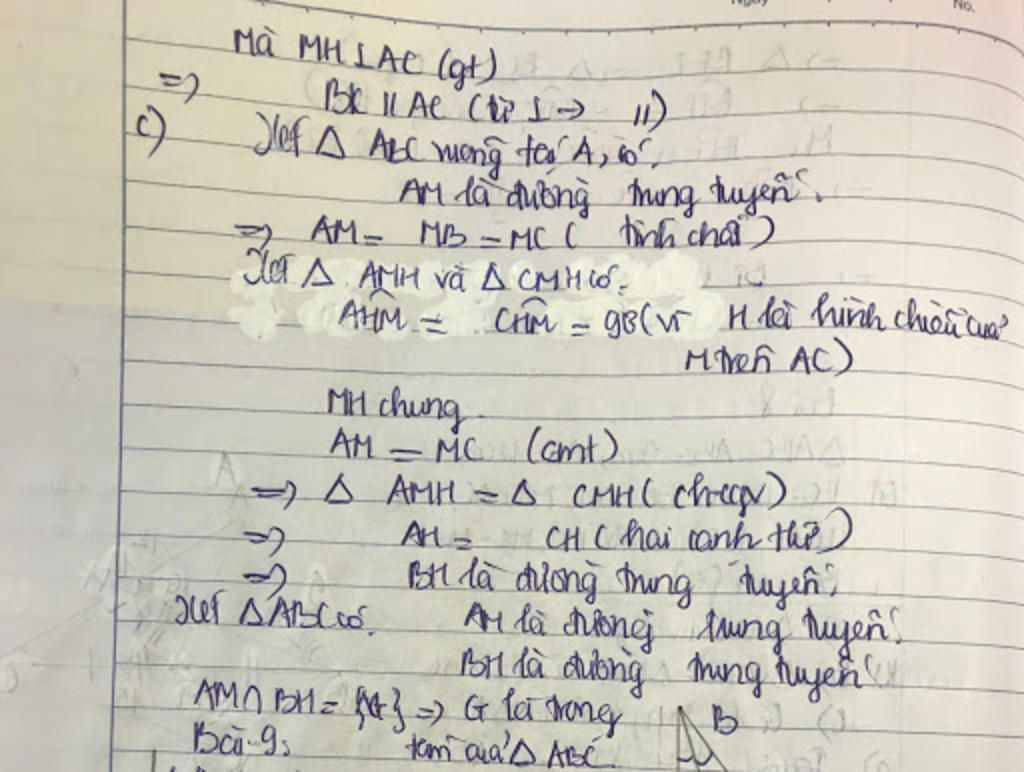 Ngày No.
Mà MH ⊥ AC (gt)
=> BK // AC (từ ⊥ -> //)
c) Xét Δ ABC vuông tại A, có:
AM là đường trung tuyến.
=> AM = MB = MC ( tính chất )
Xét Δ AMH và Δ CMH có:
AĤM = CĤM = 90 (vì H là hình chiếu của
M trên AC)
MH chung
AM = MC (cmt)
=> Δ AMH = Δ CMH ( ch-cgv)
=> AH = CH ( hai cạnh t/ứ )
=> BH là đường trung tuyến.
Xét ΔABC có: AM là đường trung tuyến.
BH là đường trung tuyến
AM ∩ BH = {G} => G là trọng
Bài 9: tâm của Δ ABC.
B